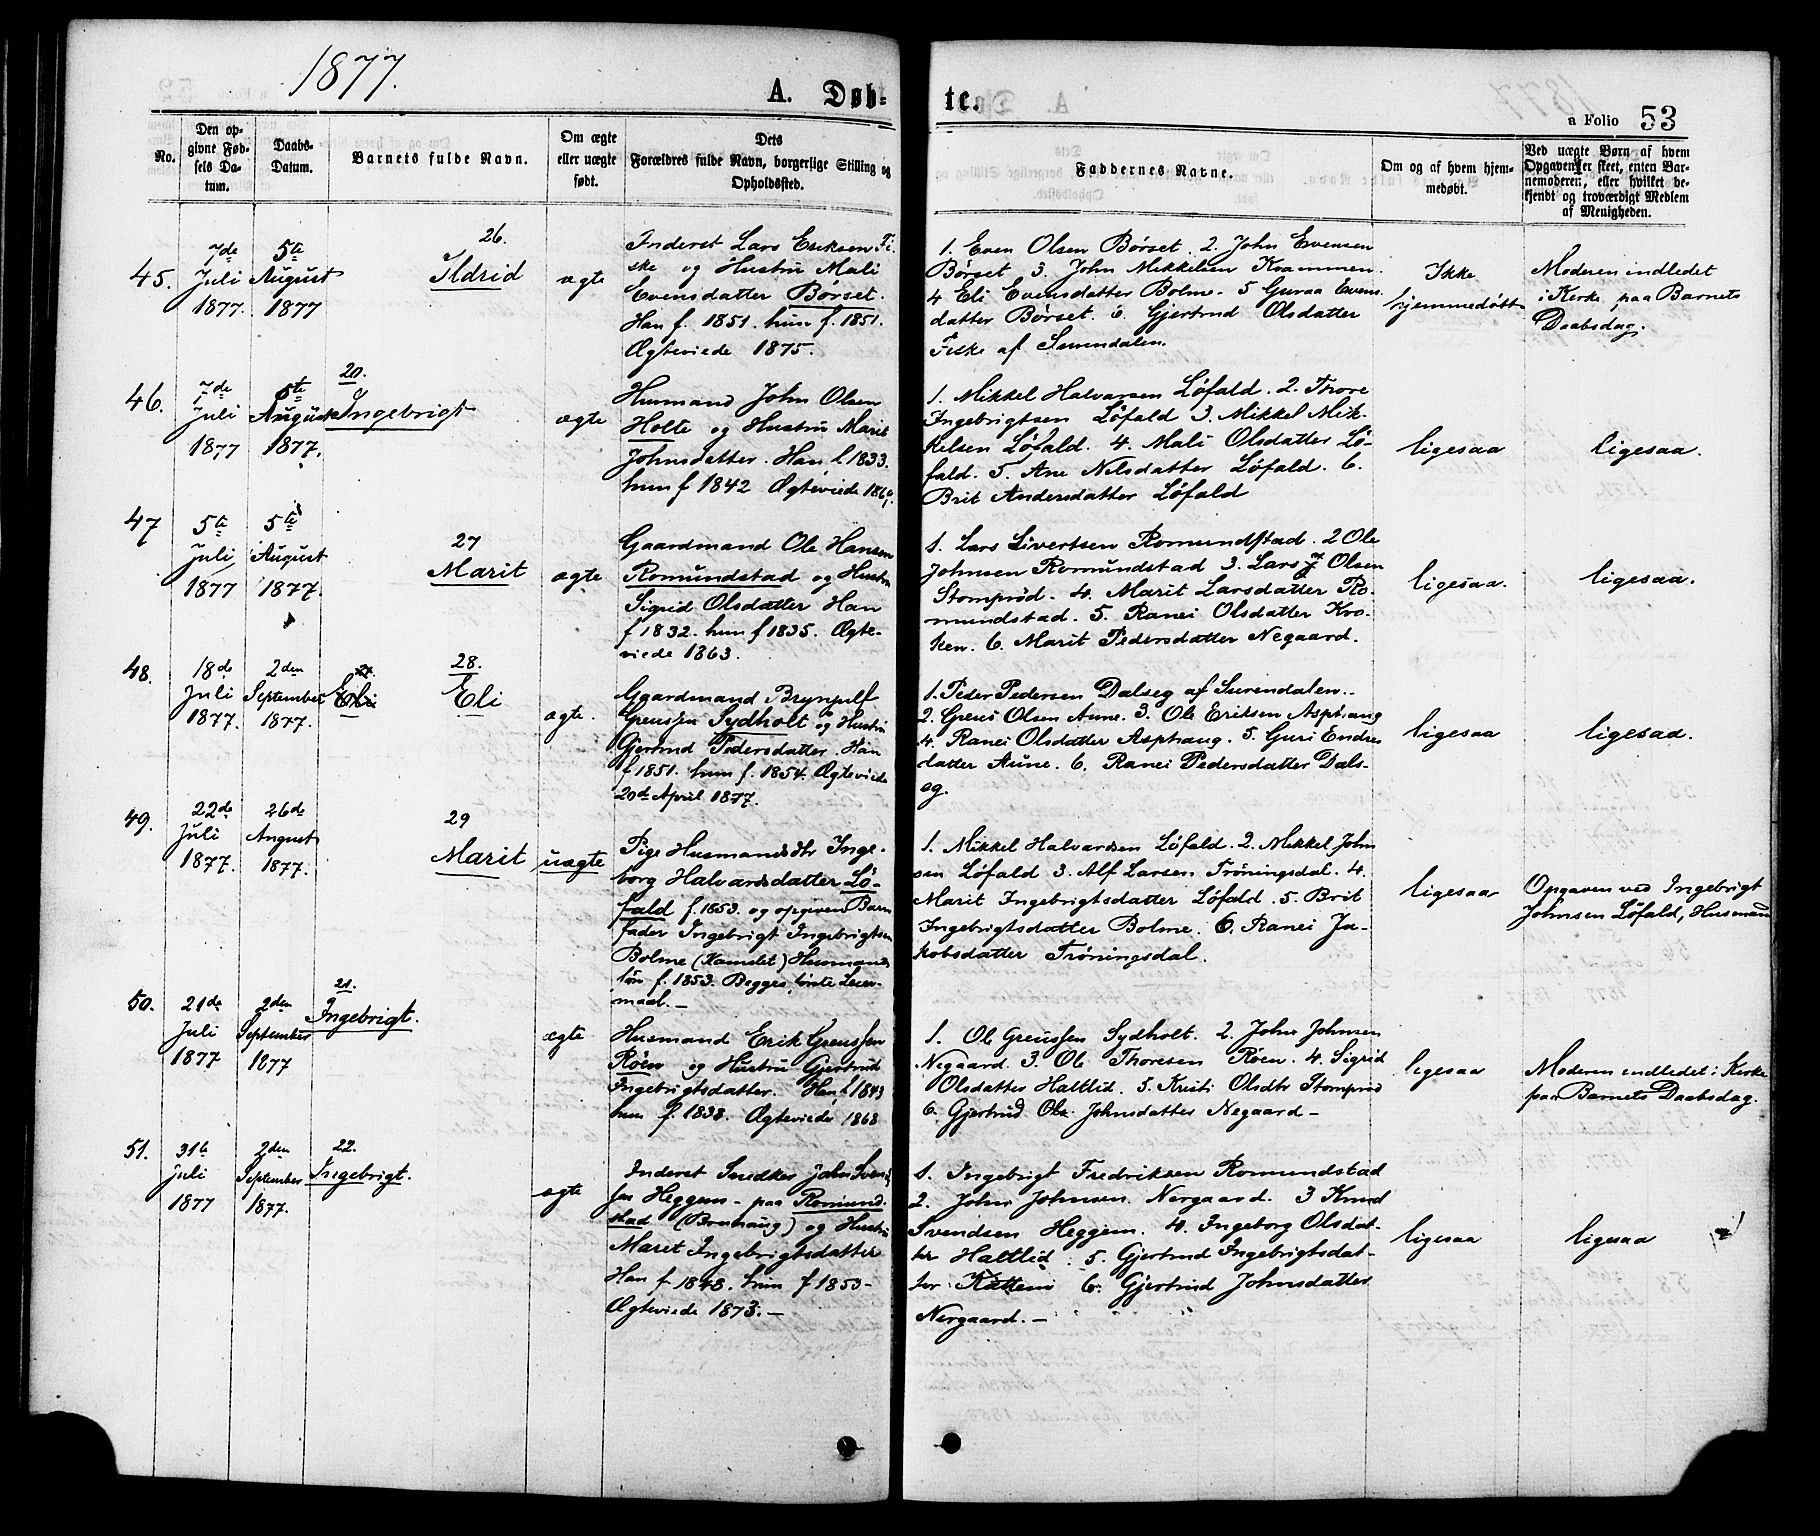 1877.
A. Døb-
te.
a Folio 53
No.
Den op-
givne Fød-
sels Da-
tum.
Daabs-
Datum.
Barnets fulde Navn.
Om ægte
eller uægte
født.
Dets
Forældres fulde Navn, borgerlige Stilling og
Opholdssted.
Faddernes Navne.
Om og af hvem hjem-
medøbt.
Ved uægte Børn af hvem
Opgaven er skeet, enten Bar-
nemoderen, eller hvilket be-
kjendt og troværdigt Medlem
af Menigheden.
45.
7de
Juli
1877.
5te
August
1877
26.
Ildrid
ægte
Inderst Lars Eriksen Fi-
ske og Hustru Mali
Evensdatter Børset.
Han f. 1851. hun f. 1851.
Ægteviede 1875.
1. Even Olsen Børset. 2. John Evensen
Børset 3. John Mikkelsen Kvammen.
4 Eli Evensdatter Bolme. 5 Guraa Evens
datter Børset. 6. Gjertrud Olsdatter
Fiske af Surendalen.
Ikke
hjemmedøbt
Moderen indledet
i Kirke paa Barnets
Daabsdag.
46.
7de
Juli
1877
5te
August
1877.
20.
Ingebrigt
ægte
Husmand John Olsen
Holte og Hustru Marit
Johnsdatter. Han f. 1833.
hun f 1842 Ægteviede
1. Mikkel Halvorsen Löfald. 2. Thore
Ingebrigtsen Löfald 3. Mikkel Mik-
kelsen Löfald. 4. Mali Olsdatter Lö-
fald. 5. Ane Nilsdatter Löfald. 6.
Brit Andersdatter Löfald
ligesaa
ligesaa.
47
5te
Juli
1877
5te
August
1877.
27
Marit
ægte
Gaardmand Ole Hansen
Romundstad og Hustru
Sigrid Olsdatter Han
f 1832. hun f 1835. Ægte-
viede 1863.
1. Lars Sivertsen Romundstad. 2 Ole
Johnsen Romundstad 3. Lars J. Olsen
Stomprød. 4. Marit Larsdatter Ro-
mundstad. 5. Ranei Olsdatter Kro-
ken. 6. Marit Pedersdatter Negaard.
ligesaa.
ligesaa.
48.
18de
Juli
1877.
2den
September
1877.
Eli
28.
Eli
ægte.
Gaardmand Brynjulf
Greussen Sydholt og Hustru
Gjertrud Pedersdatter. Han
f 1851. hun f. 1854. Ægteviede
20de April 1877.
1. Peder Pedersen Dalseg af Surendalen.
2. Greus Olsen Aune. 3. Ole Eriksen Asphaug
4. Ranei Olsdatter Asphaug. 5. Guri Endres
datter Aune. 6. Ranei Pedersdatter Dals-
eg.
ligesaa
ligesaa.
49.
22de
Juli
1877.
26de
August
1877.
29
Marit
uægte
Pige Husmandsdtr Inge-
borg Halvardsdatter Lö-
fald f. 1853. og opgiven Barn
fader Ingebrigt Ingebrigtsen
Bolme (Kamslet) Husmands
sön f. 1853. Begges förste Leier-
maal.
1. Mikkel Halvardsen Löfald. 2. Mikkel John
sen Löfald 3. Alf Larsen Tröningsdal. 4.
Marit Ingebrigtsdatter Löfald. 5. Brit
Ingebrigtsdatter Bolme. 6. Ranei Ja-
kobsdatter Tröningsdal.
ligesaa
Opgaven ved Ingebrigt
Johnsen Löfald, Husmand
50.
21de
Juli
1877
2den
September
1877
21.
Ingebrigt.
ægte
Husmand Erik Greussen
Röen og Hustru Gjertrud
Ingebrigtsdatter. Han f. 1843
hun f. 1838. Ægteviede 1868
1. Ole Greussen Sydholt. 2. John Johnsen
Negaard. 3. Ole Thoresen Röen. 4. Sigrid
Olsdatter Haltlid. 5. Kristi Olsdtr Stomprød
6. Gjertrud Johnsdatter Negaard
ligesaa
Moderen indledet i Kirke
paa Barnets Daabsdag.
51.
31te
Juli
1877
2den
September
1877.
22.
Ingebrigt.
ægte
Inderst Snedker John Svend
sen Heggem paa Romund-
stad (Brunaug) og Hustru
Maret Ingebrigtsdatter
Han f 1848. hun f 1853
Ægteviede 1873.
1. Ingebrigt Fredriksen Romundstad
2. John Johnsen Nergaard. 3 Knud
Svendsen Heggem. 4. Ingeborg Olsdat-
ter Haltlid. 5. Gjertrud Ingebrigtsdat-
ter Kattem 6. Gjertrud Johnsdatter
Nergaard.
ligesaa
ligesaa